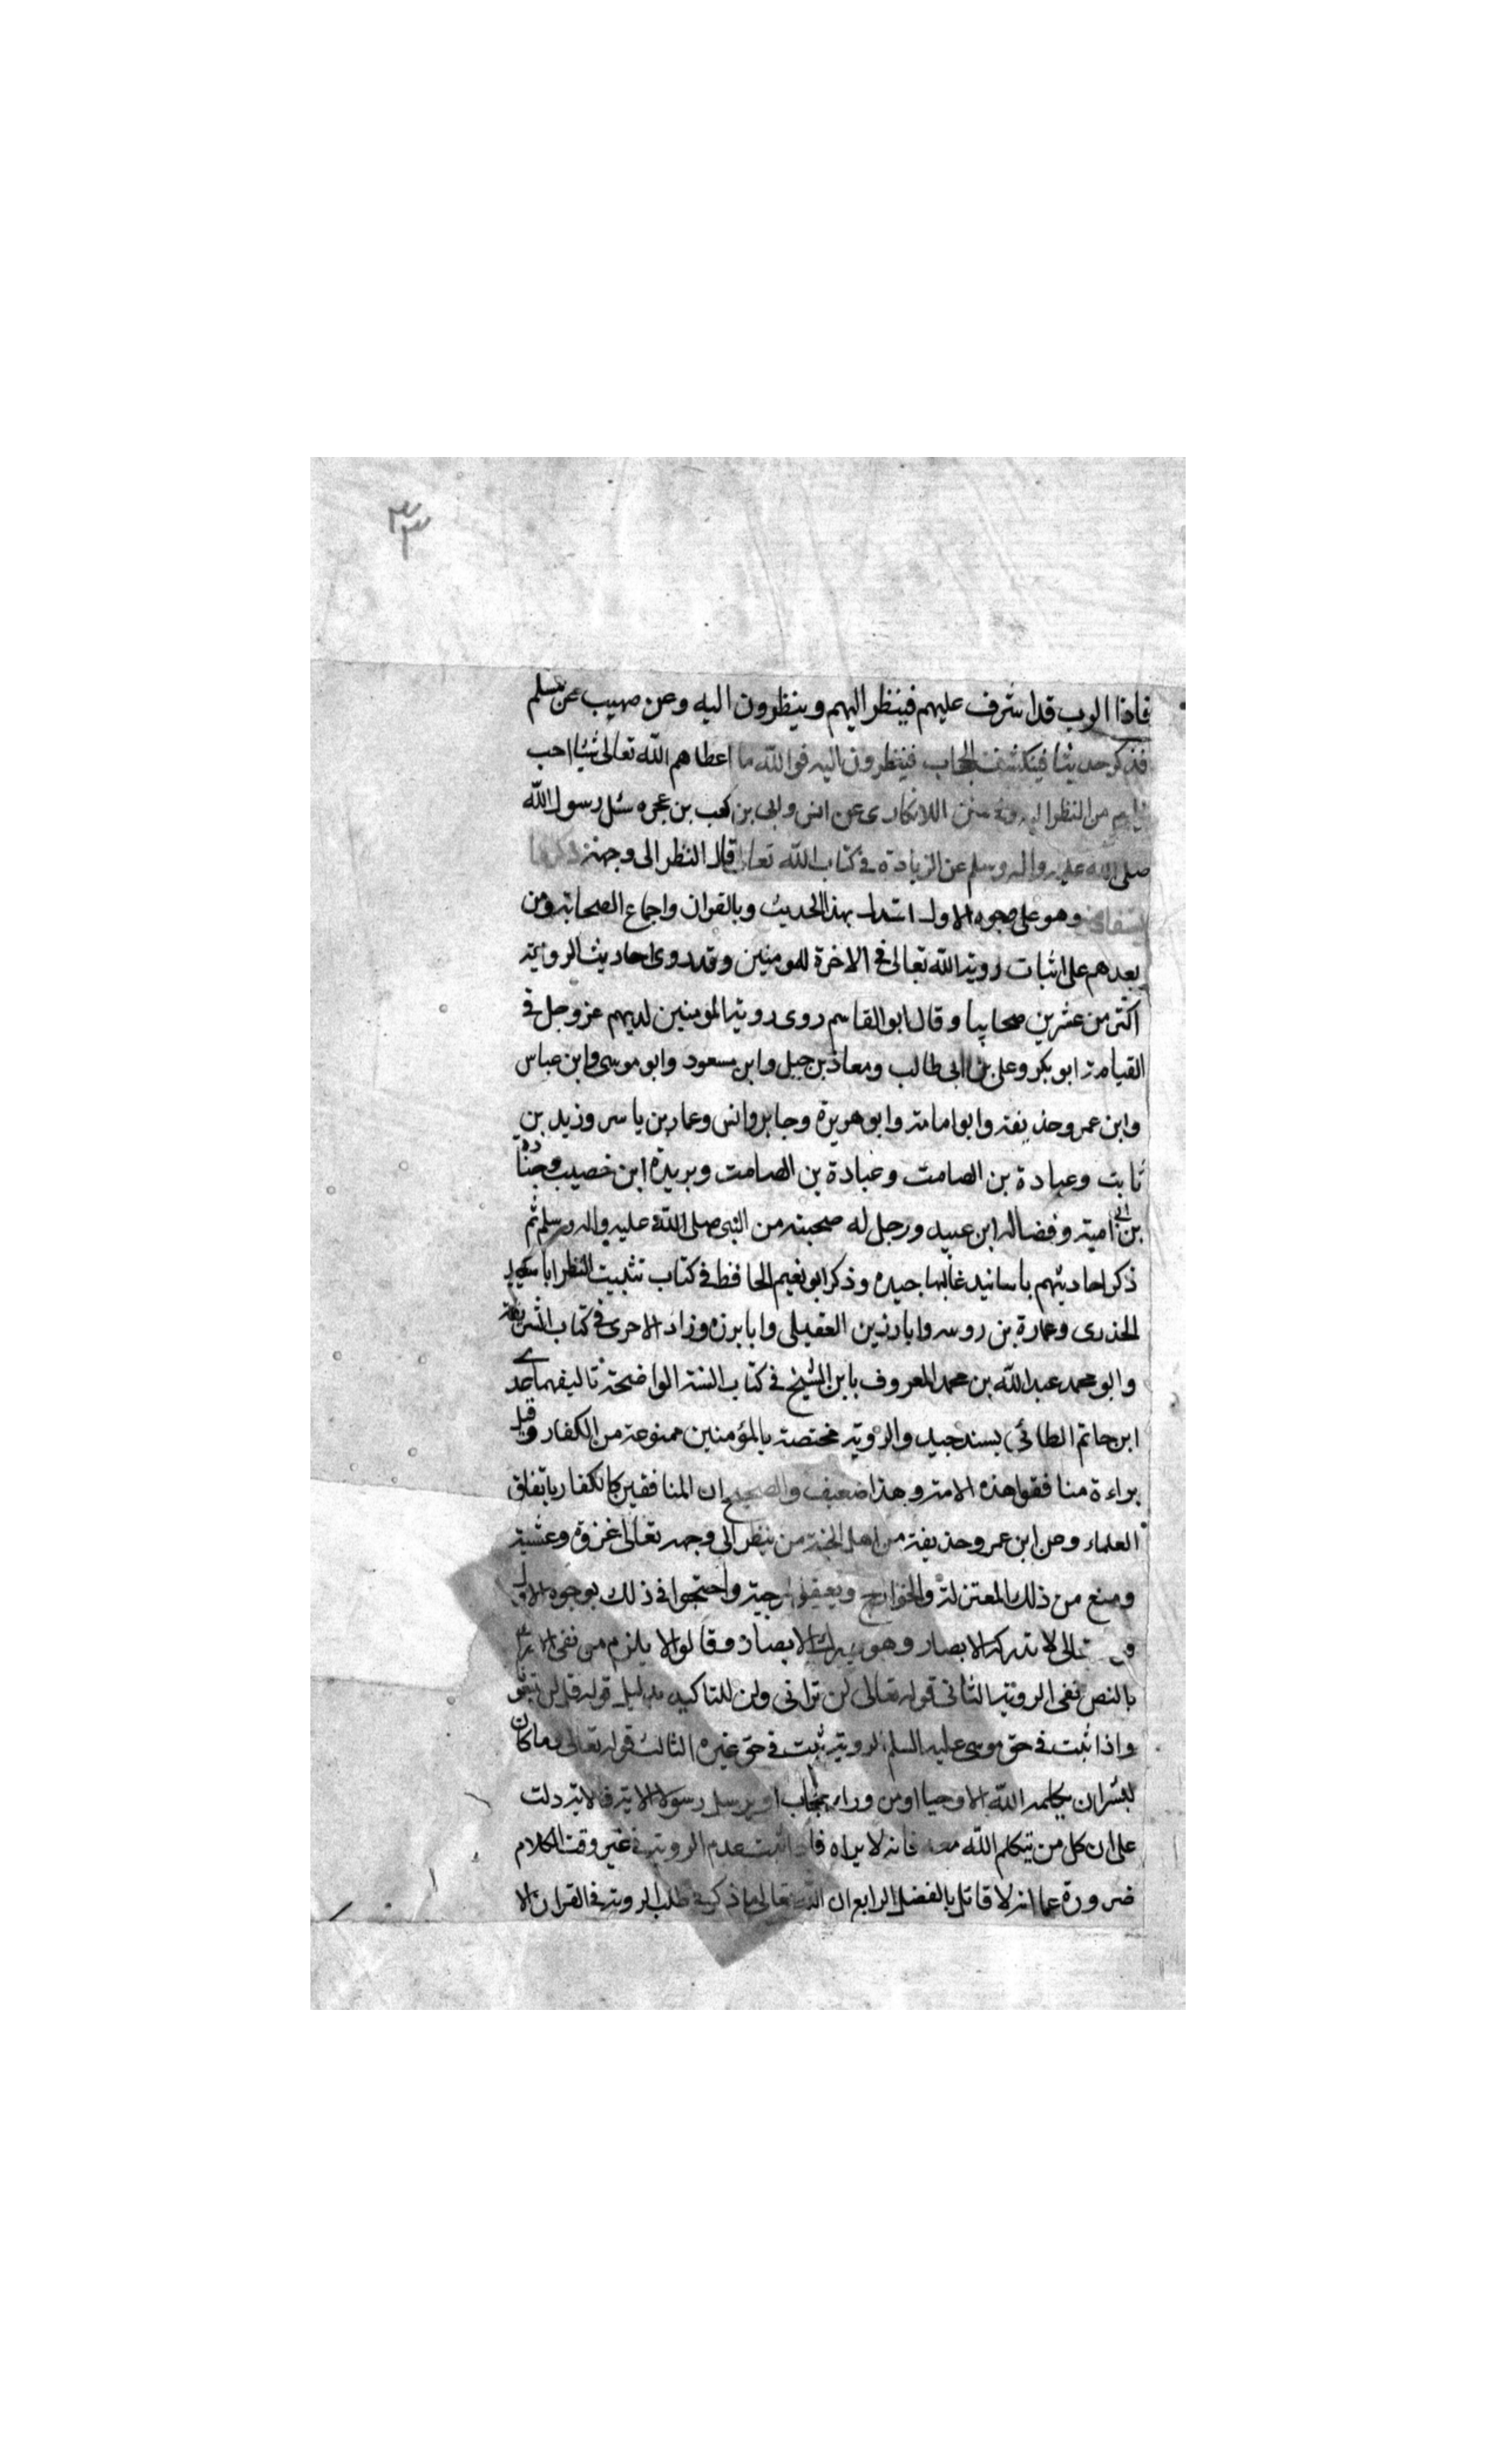 ٣٣
فاذا الرب قد اشرف عليهم فينظر اليهم وينظرون اليه وعن صهيب عن مسلم
فذكر حديثا فيكشف الحجاب فينظرون اليه فوالله ما اعطاهم الله تعالى شيئا احب
اليهم من النظر اليه وفي سنن اللالكاري عن انس وابي بن كعب بن عجره سئل رسول الله
صلى الله عليه واله وسلم عن الزيادة في كتاب الله تعالى قال النظر الى وجهه
وهو على وجوه الاول استدل بهذا الحديث وبالقران واجماع الصحابة ومن
بعدهم على اثبات روية الله تعالى في الاخرة للمومنين وقد روى احاديث الروية
اكثر من عشرين صحابيا وقال ابو القاسم روى روية المومنين لديهم عز وجل في
القيامة ابو بكر وعلى بن ابى طالب ومعاذ بن جبل وابن مسعود وابو موسى وابن عباس
وابن عمر وحذيفة وابو امامة وابو هريرة وجابر وانس وعمار بن ياسر وزيد بن
ثابت وعبادة بن الصامت وعبادة بن الصامت وبريدة ابن خصيب وجنادة
بن ابى امية وفضاله ابن عبيد ورجل له صحبة من النبى صلى الله عليه واله وسلم ثم
ذكر احاديثهم باسانيد غالبها جيده وذكر ابو نعيم الحافظ في كتاب تثبيت النظر ابا سعيد
الخدرى وعمارة بن روسه وابا رزين العقيلى وابا برزه وزاد الاجرى في كتاب الشريعة
وابو محمد عبد الله بن محمد المعروف بابن الشيخ في كتاب السنة الواضحة تاليفهما عدى
ابن حاتم الطائي بسند جيد والروية مختصة بالمؤمنين ممنوعة من الكفار وقيل
براءة منافقوا هذه الامة وهذا ضعيف والصحيح ان المنافقين كالكفار باتفاق
العلماء وعن ابن عمر وحذيفة من اهل الجنة من ينظر الى وجهه تعالى غدوة وعشية
ومنع من ذلك المعتزلة والخوارج وبعض المرجية واحتجوا في ذلك بوجوه الاول
تعالى لا تدركه الابصار وهو يدرك الابصار وقالوا لا يلزم من نفى
بالنص نفى الروية الثانى قوله تعالى لن ترانى ولن للتاكيد بدليل قوله قل لن تتبعونا
واذا ثبت في حق موسى عليه السلم الروية ثبت في حق غيره الثالث قوله تعالى وما كان
لبشر ان يكلمه الله الا وحيا او من وراء حجاب او يرسل رسولا الاية فالاية دلت
على ان كل من تيكلم الله معه فانه لا يراه فاذا ثبت عدم الروية في غير وقت الكلام
ضرورة عما انه لا قائل بالفضل الرابع ان الله تعالى ما ذكر في طلب الروية في القران الا